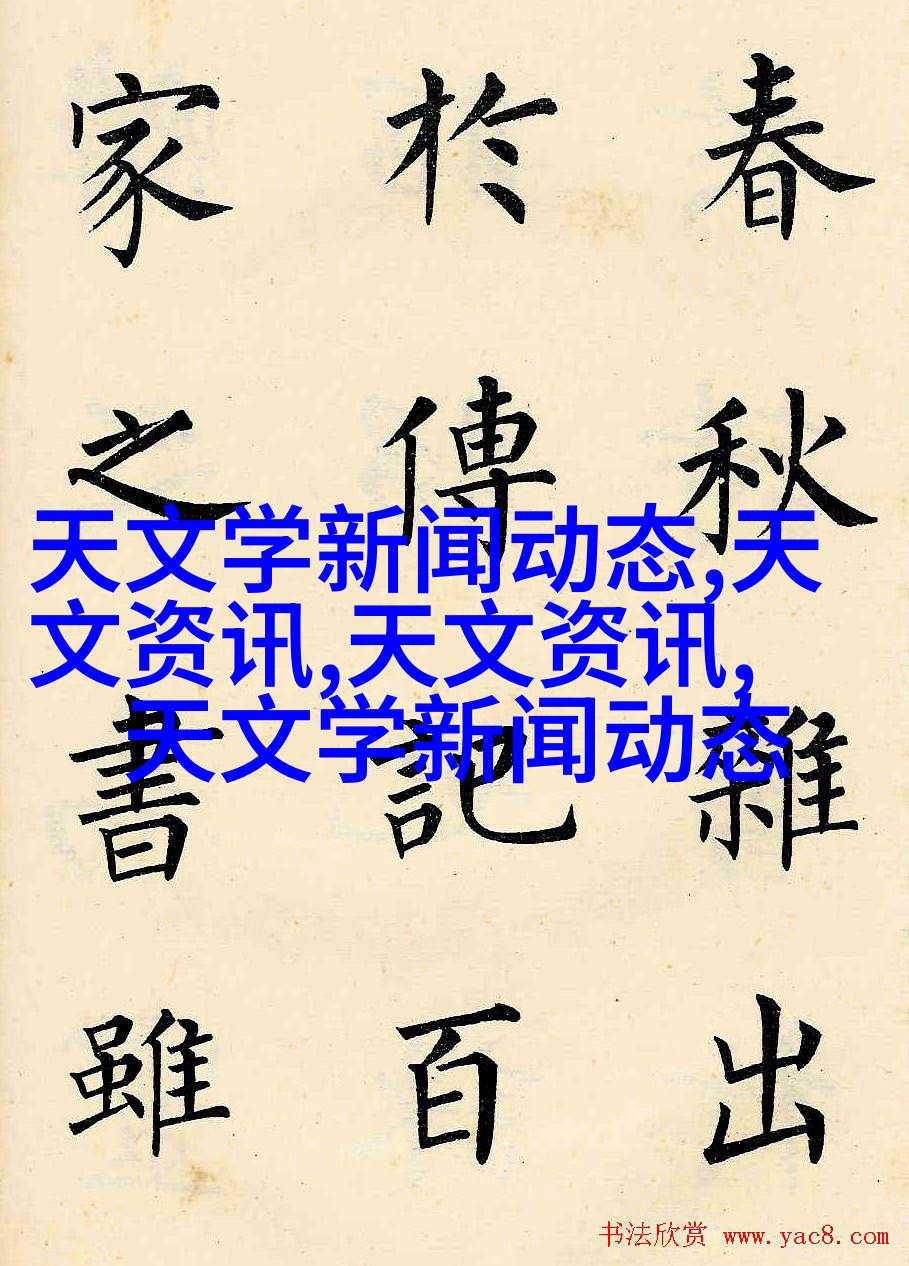 春秋雜出
於傳記百
家之書雖
天文学新闻动态,天
文资讯,天文资讯,
天文学新闻动态
书法欣赏 www.yac8.com